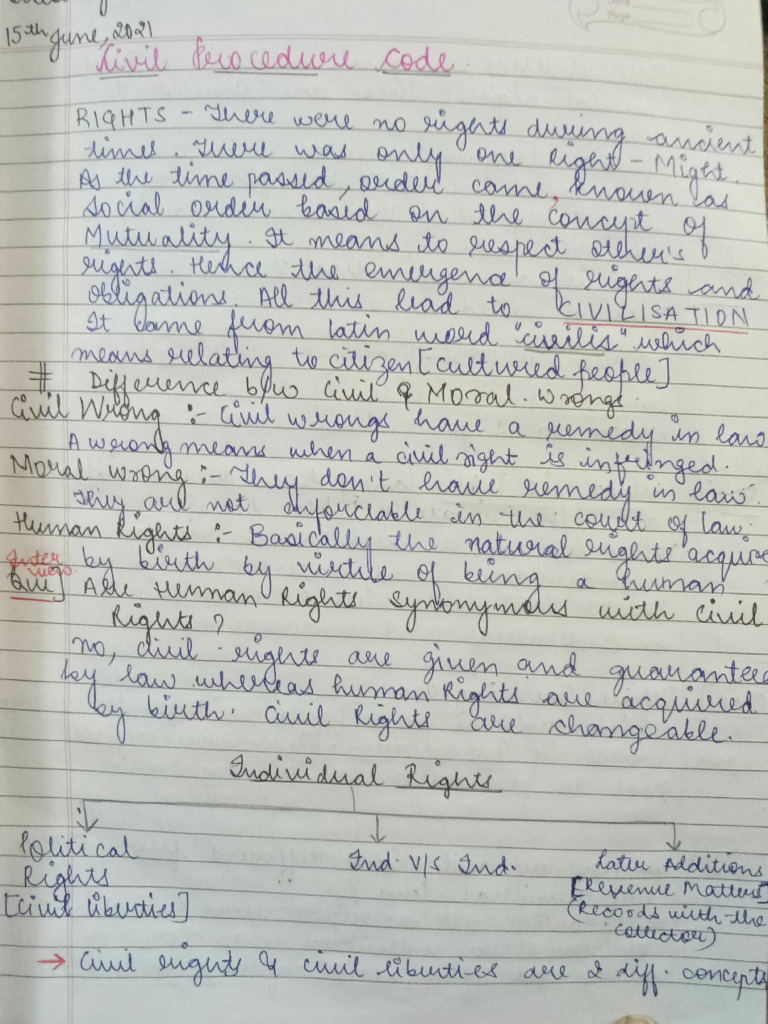 15th June, 2021
Civil Procedure Code
RIGHTS - There were no rights during ancient
times. There was only one Right - Might.
As the time passed, order came, known as
social order based on the concept of
Mutuality. It means to respect other's
rights. Hence the emergence of rights and
obligations. All this lead to CIVILISATION
It came from latin word "civilis" which
means relating to citizen [cultured people]
# Difference b/w Civil & Moral. Wrongs
Civil Wrong :- Civil wrongs have a remedy in law
A wrong means when a civil right is infringed.
Moral wrong :- They don't have remedy in law.
They are not enforceable in the court of law.
Human Rights :- Basically the natural rights acquire
by birth by virtue of being a human
Que] Are Human Rights synonymous with civil
Rights?
No, civil rights are given and guarantee
by law whereas human Rights are acquired
by birth. Civil Rights are changeable.
Individual Rights
Political Rights
[Civil liberties]
Ind. V/s Ind.
Later Additions
[Revenue Matters]
(Records with the
collector)
→ Civil rights & civil liberties are 2 diff. concepts